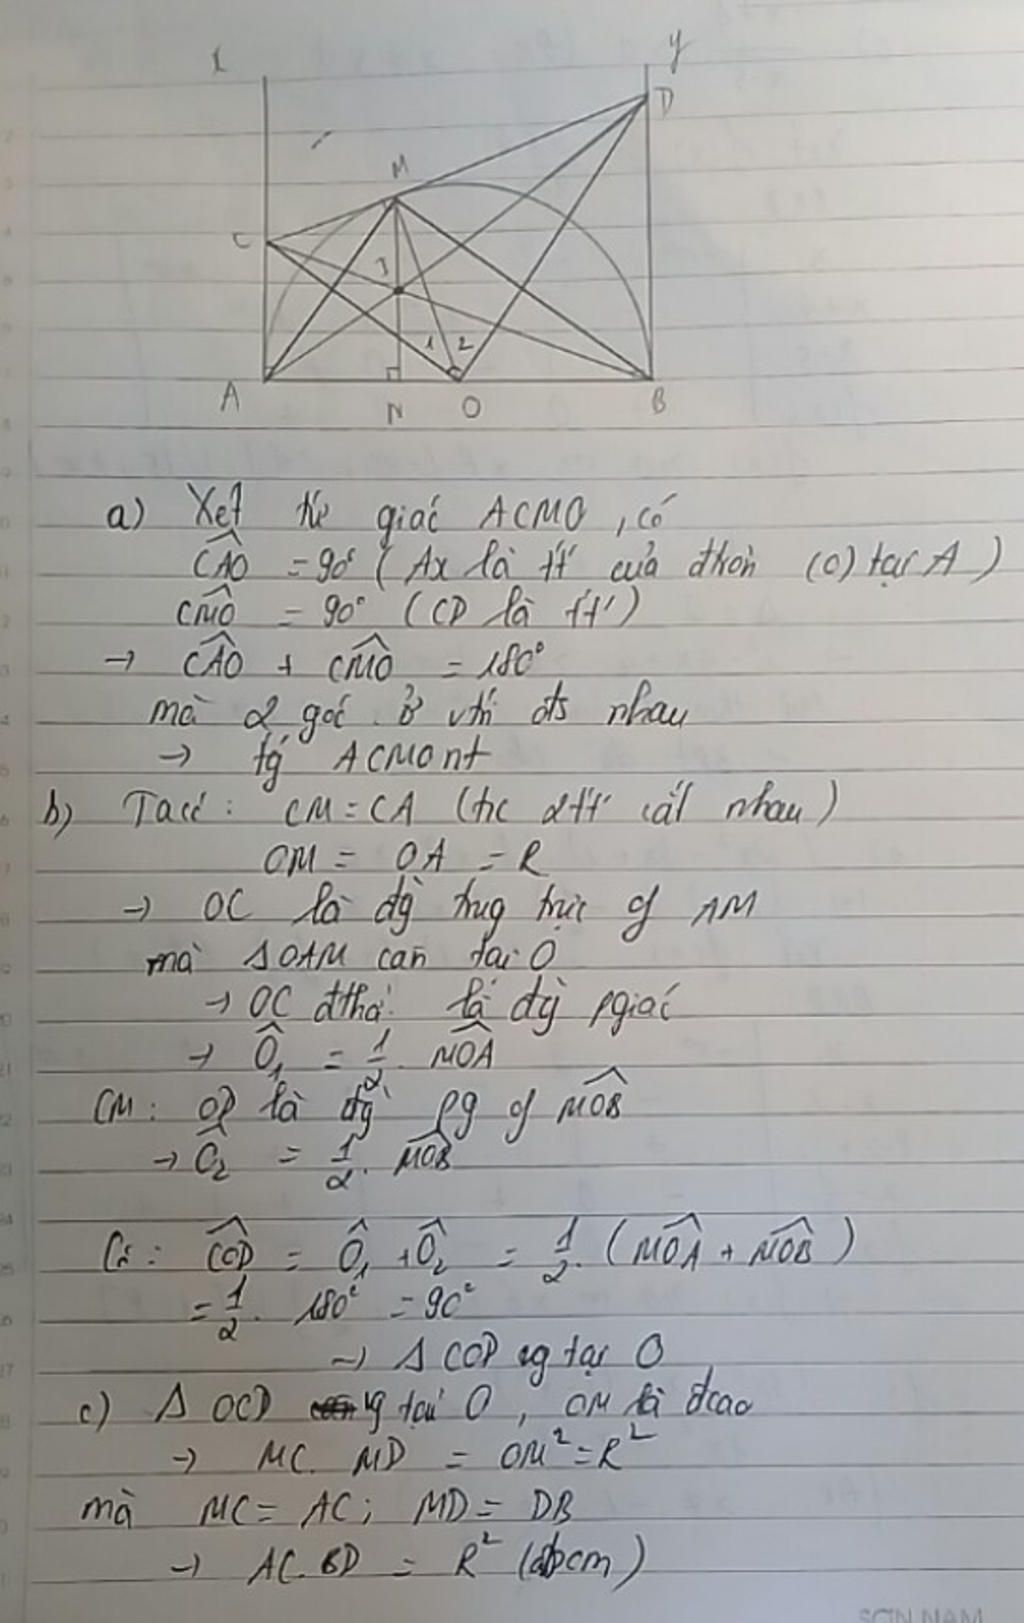 x
y
D
M
C
I
1 2
A
N
O
B
a) Xét tứ giác ACMO, có
CAO = 90° (Ax là tt của đtròn (O) tại A)
CMO = 90° (CD là tt)
→ CAO + CMO = 180°
mà 2 góc ở vtrí đs nhau
→ tg ACMO nt
b) Ta có: CM = CA (tc 2tt cắt nhau)
OM = OA = R
→ OC là đg trug trực of AM
mà ΔOAM cân tại O
→ OC đthời là đg pgiác
→ O₁ = 1/2. MOA
CM: OD là đg pg of MOB
→ O₂ = 1/2. MOB
Có: COD = O₁ + O₂ = 1/2. (MOA + MOB)
= 1/2. 180° = 90°
→ ΔCOD vg tại O
c) Δ OCD vg tại O, OM là đcao
→ MC. MD = OM² = R²
mà MC = AC; MD = DB
→ AC. BD = R² (đpcm)